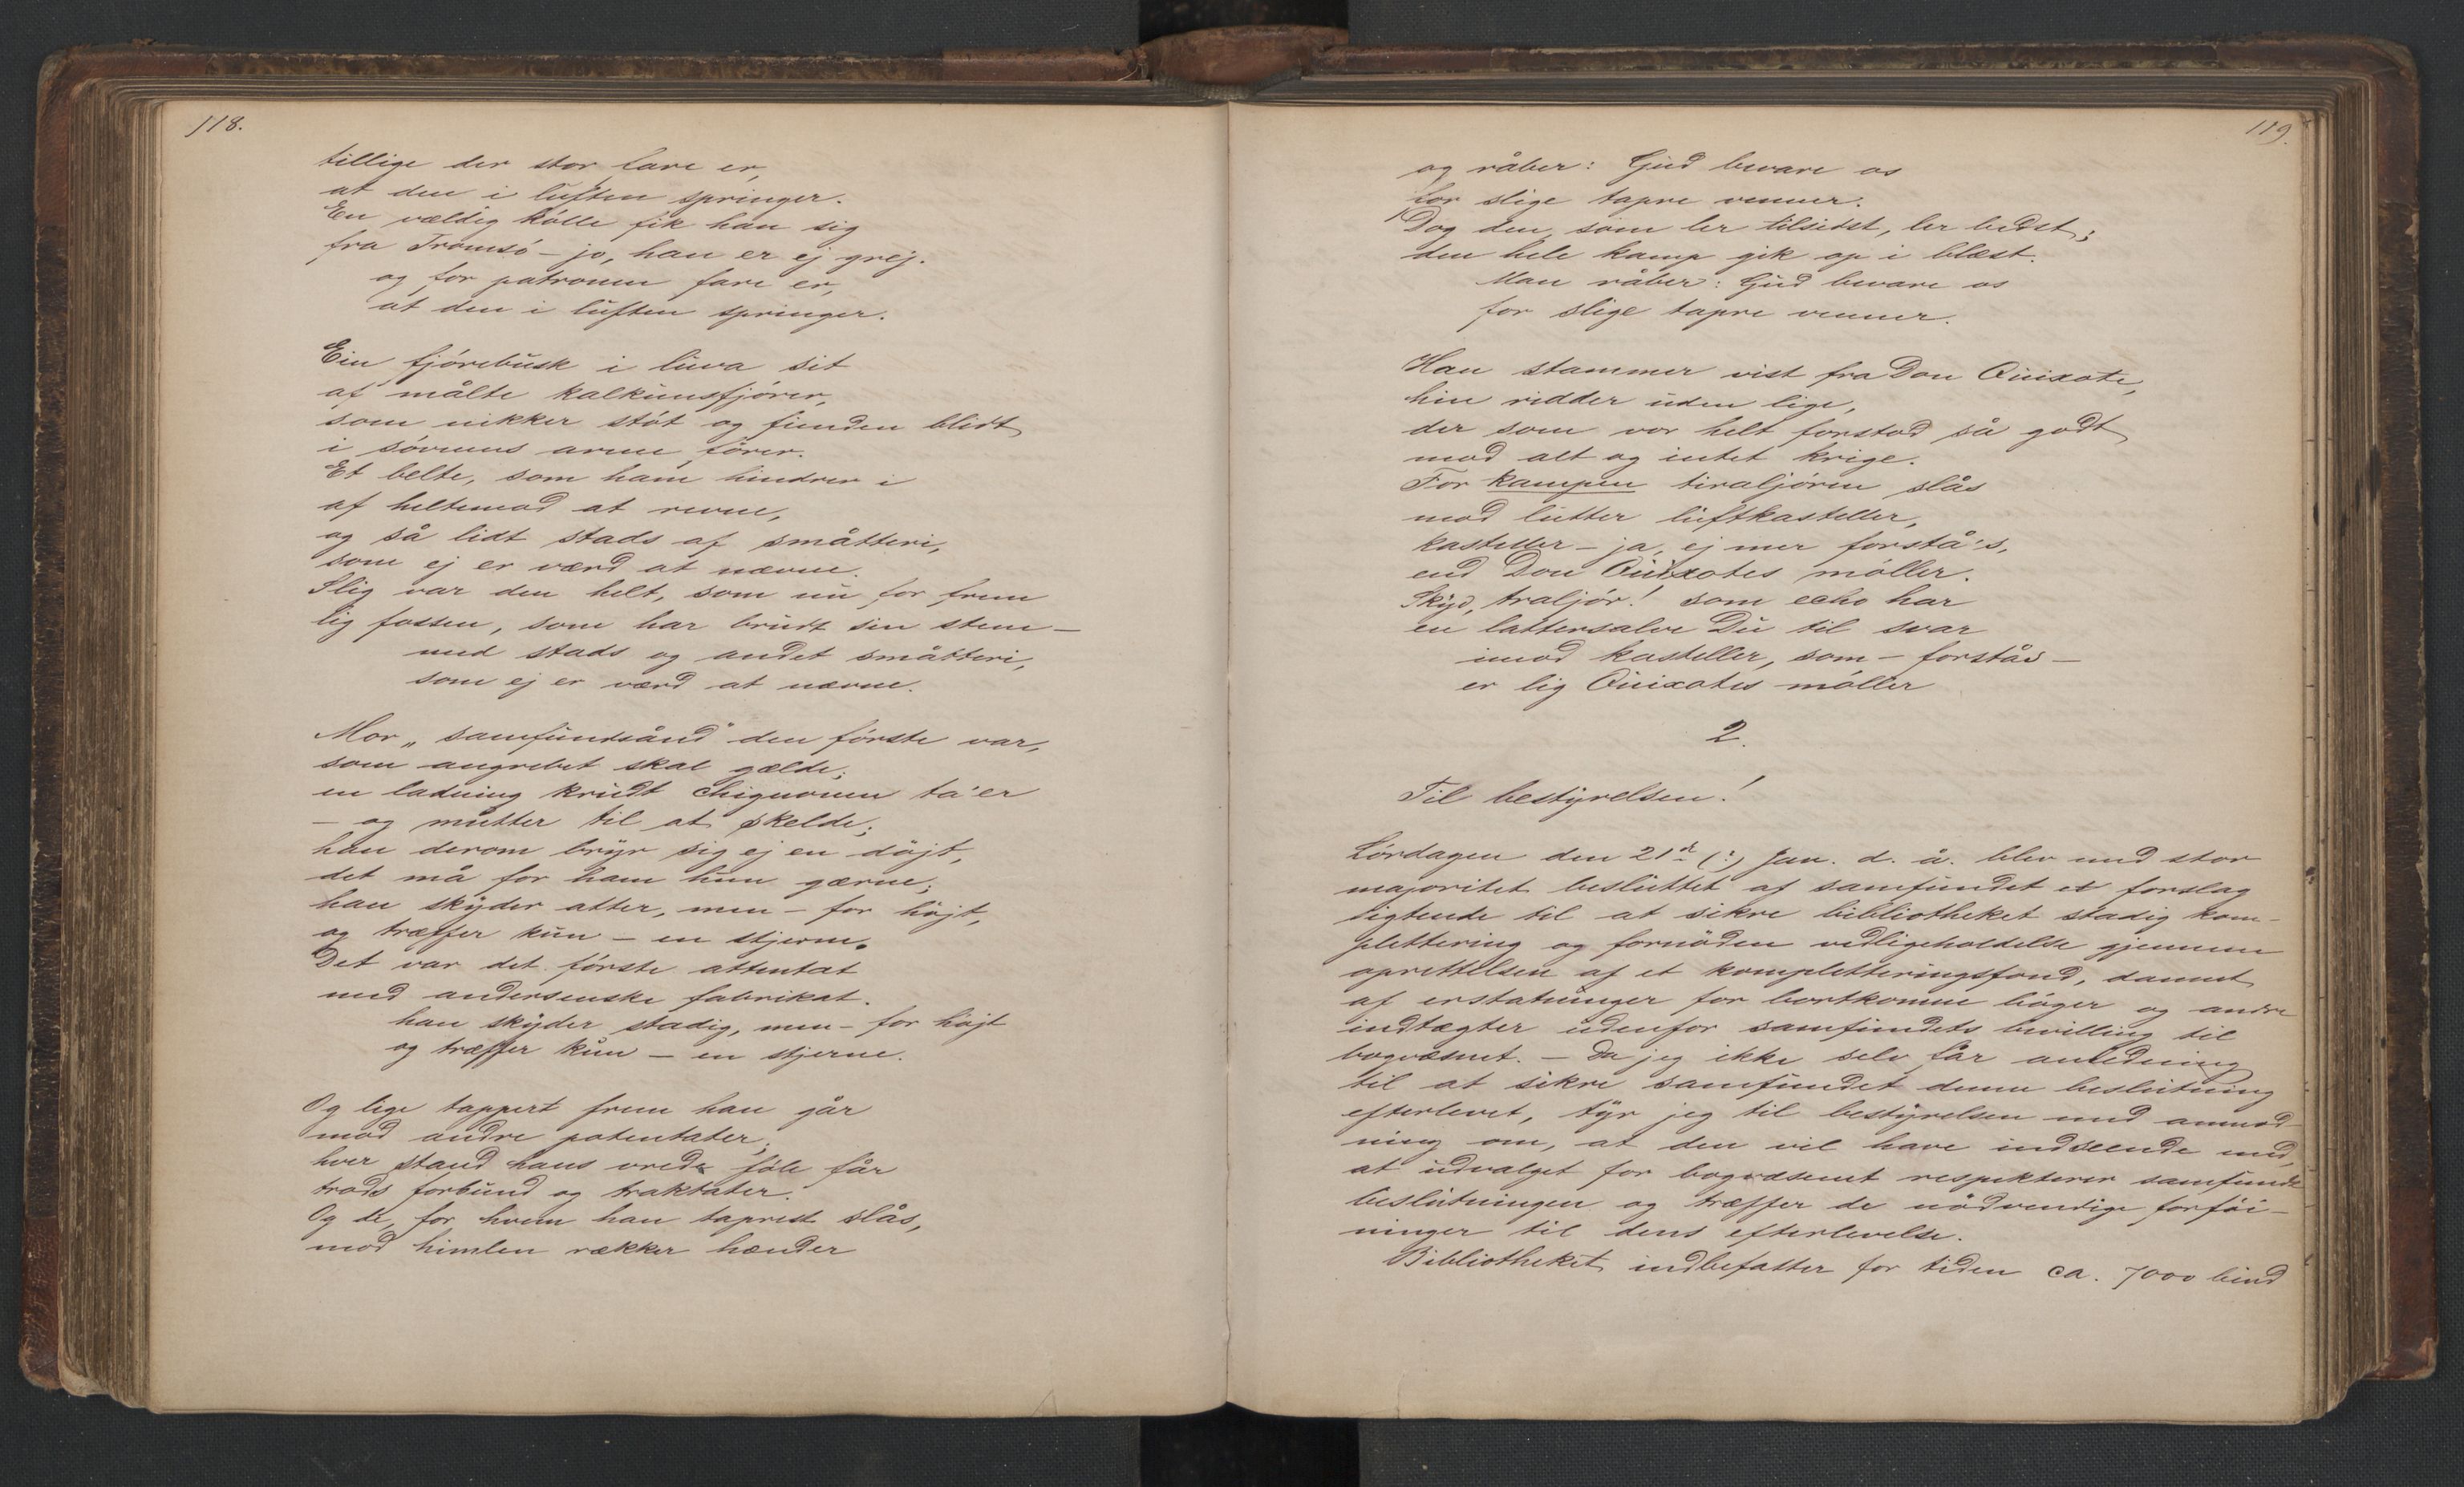 118.
tillige der stor fare er,
at den i luften springer.
En vældig kölle fik han sig
fra Tromsö – jo, han er ej grej.
og for patronen fare er,
at den i luften springer.
Ein fjörebusk i luva sit
af målte kalkunsfjörer,
som nikker stöt og fienden blidt
i sövnens arme förer.
Et belte, som ham hindrer i
af heltemod at revne,
og så lidt stads af småtteri,
som ej er værd at nævne.
Slig var den helt, som nu for frem
lig fossen, som har brudt sin stem –
med stads og andet småtteri,
som ej er værd at nævne.
Mor „samfundsånd" den förste var,
som angrebet skal gælde;
en ladning krudt chignonen ta'er
– og mutter til at skelde;
han derom bryr sig ej en döjt,
det må for ham hun gærne;
han skyder atter, men – for höjt,
og træffer kun – en stjerne.
Det var det förste attentat
med andersenske fabrikat.
han skyder stadig, men – for höjt
og træffer kun – en stjerne.
Og lige tappert frem han går
mod andre potentater;
hver stand hans vrede föle får
trods forbund og traktater.
Og de, for hvem han taprest slås,
mod himlen rækker hænder
119.
og råber: Gud bevare os
for slige tapre venner.
Dog den, som ler tilsidst, ler bedst;
den hele kamp gik op i blæst.
Man råber: Gud bevare os
for slige tapre venner.
Han stammer vist fra Don Quixote,
hin ridder uden lige,
der som vor helt forstod så godt
mod alt og intet krige.
For kampen tiraljören slås
mod lutter luftkasteller,
kasteller – ja, ej mer forstå's,
end Don Quixotes möller.
Skyd, traljör! som echo har
en lattersalve Du til svar
imod kasteller, som – forstås –
er lig Quixotes möller
2.
Til bestyrelsen!
Lördagen den 21de (:) Jan. d. å. blev med stor
majoritet besluttet af samfundet et forslag
sigtende til at sikre bibliotheket stadig kom-
plettering og fornöden vedligeholdelse gjennem
oprettelsen af et kompletteringsfond, dannet
af erstatninger for bortkomne böger og andre
indtægter udenfor samfundets bevilling til
bogvæsnet. – Da jeg ikke selv får anledning
til at sikre samfundet denne beslutning
efterlevet, tyr jeg til bestyrelsen med anmod-
ning om, at den vil have indseende med,
at udvalget for bogvæsenet respekterer samfunds
beslutningen og træffer de nödvendige forföi-
ninger til dens efterlevelse.
Bibliotheket indbefatter for tiden ca. 7000 bind